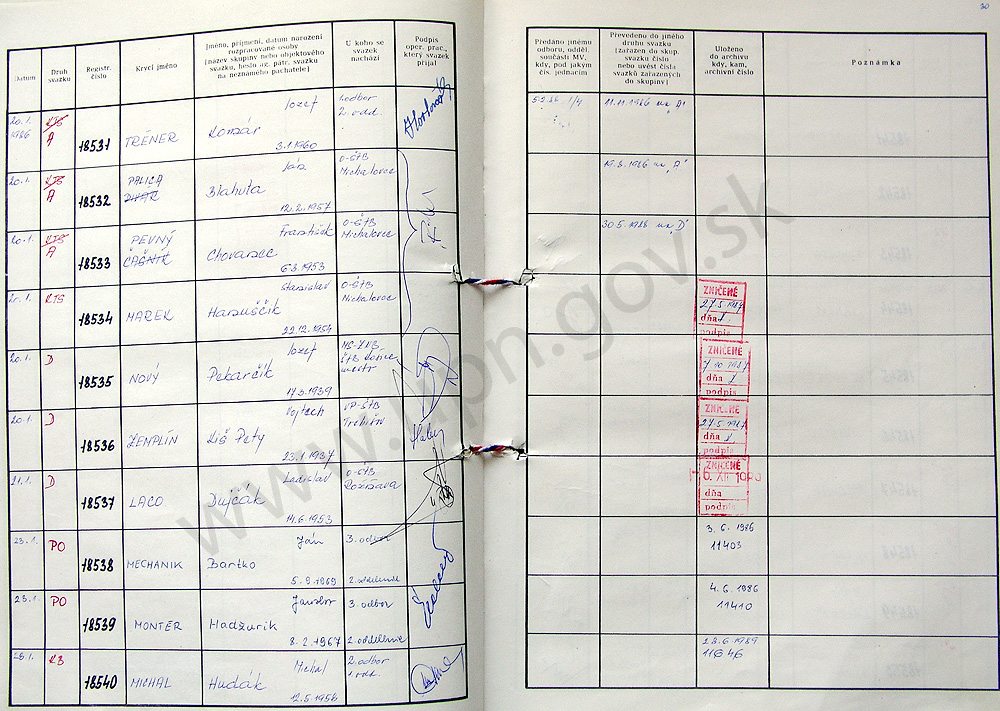 30
Datum
Druh svazku
Registr. číslo
Krycí jméno
Jméno, příjmení, datum narození
rozpracované osoby
[název skupiny nebo objektového
svazku, heslo ag. pátr. svazku
na neznámého pachatele]
U koho se
svazek
nachází
Podpis
oper. prac.,
který svazek
přijal
Předáno jinému
odboru, odděl.
součásti MV,
kdy, pod jakým
čís. jednacím
Převedeno do jiného
druhu svazku
[zařazen do skup.
svazku číslo
nebo uvést čísla
svazků zařazených
do skupiny]
Uloženo
do archivu
kdy, kam,
archivní číslo
Poznámka
20.1.
1986
KTS
A
18531
TRÉNER
Jozef
Komár
3.1.1960
1. odbor
2. odd.
5.2.86
11.11.1986 na "D"
20.1.
KTS
A
18532
PALICA
Ján
Blahuta
12.2.1957
O-ŠTB
Michalovce
19.3.1986 na "A"
20.1.
KTS
A
18533
PEVNÝ
ČAŠNÍK
František
Chovanec
6.3.1953
O-ŠTB
Michalovce
30.5.1986 na "D"
20.1.
KTS
18534
MAREK
Stanislav
Hanuščik
22.12.1954
O-ŠTB
Michalovce
ZNIČENÉ
27.5.1987
dňa
podpis
20.1.
D
18535
NOVÝ
Jozef
Pekarčik
17.3.1939
ZNIČENÉ
dňa
podpis
20.1.
D
18536
ZEMPLÍN
Vojtech
Liš Pety
23.1.1937
OP-ŠTB
Trebišov
ZNIČENÉ
27.5.1987
dňa
podpis
21.1.
D
18537
LACO
Ladislav
Dujčák
14.6.1953
O-ŠTB
Rožňava
ZNIČENÉ
dňa
podpis
23.1.
PO
18538
MECHANIK
Ján
Bartko
5.9.1969
3. odbor
2. oddelenie
3.6.1986
11403
23.1.
PO
18539
MONTÉR
Jaroslav
Hadžurik
8.2.1967
3. odbor
2. oddelenie
4.6.1986
11410
28.1.
KB
18540
MICHAL
Michal
Hudák
12.5.1956
2. odbor
1. odd.
28.6.1989
11646
www.upn.gov.sk